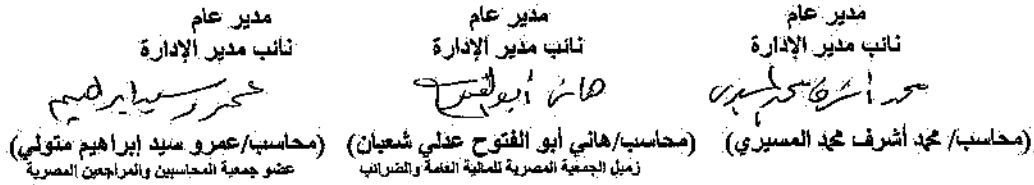 مدير عام
نائب مدير الإدارة
محمد أشرف محمد المسيري
(محاسب/ محمد أشرف محمد المسيري)
مدير عام
نائب مدير الإدارة
هاني أبو الفتوح
(محاسب/هاني أبو الفتوح عدلي شعبان)
زميل الجمعية المصرية للمالية العامة والضرائب
مدير عام
نائب مدير الإدارة
عمرو سيد ابراهيم
(محاسب/عمرو سيد إبراهيم متولي)
عضو جمعية المحاسبين والمراجعين المصرية